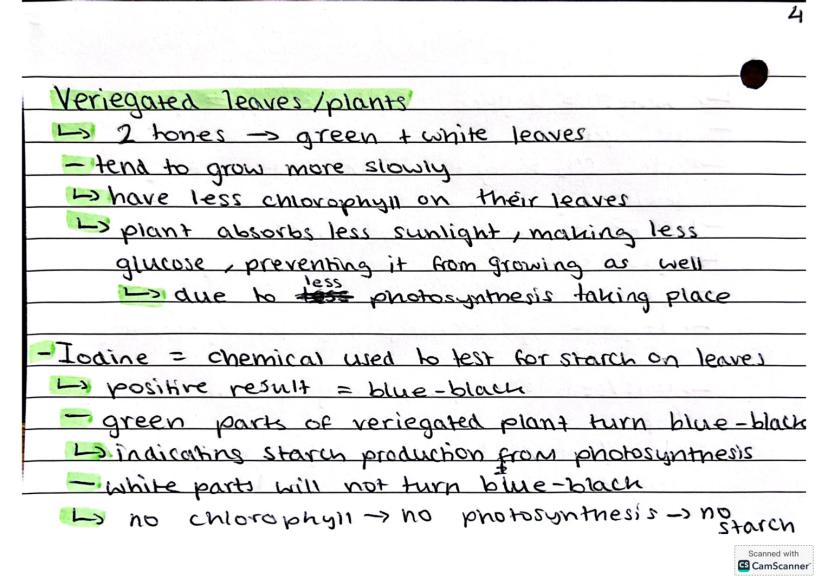 4
Veriegated leaves/plants
↳ 2 tones → green + white leaves
- tend to grow more slowly
↳ have less chlorophyll on their leaves
↳ plant absorbs less sunlight, making less
glucose, preventing it from growing as well
↳ due to less photosynthesis taking place
- Iodine = chemical used to test for starch on leaves
↳ positive result = blue-black
- green parts of veriegated plant turn blue-black
↳ indicating starch production from photosynthesis
- white parts will not turn blue-black
↳ no chlorophyll → no photosynthesis → no starch
Scanned with
CS CamScanner